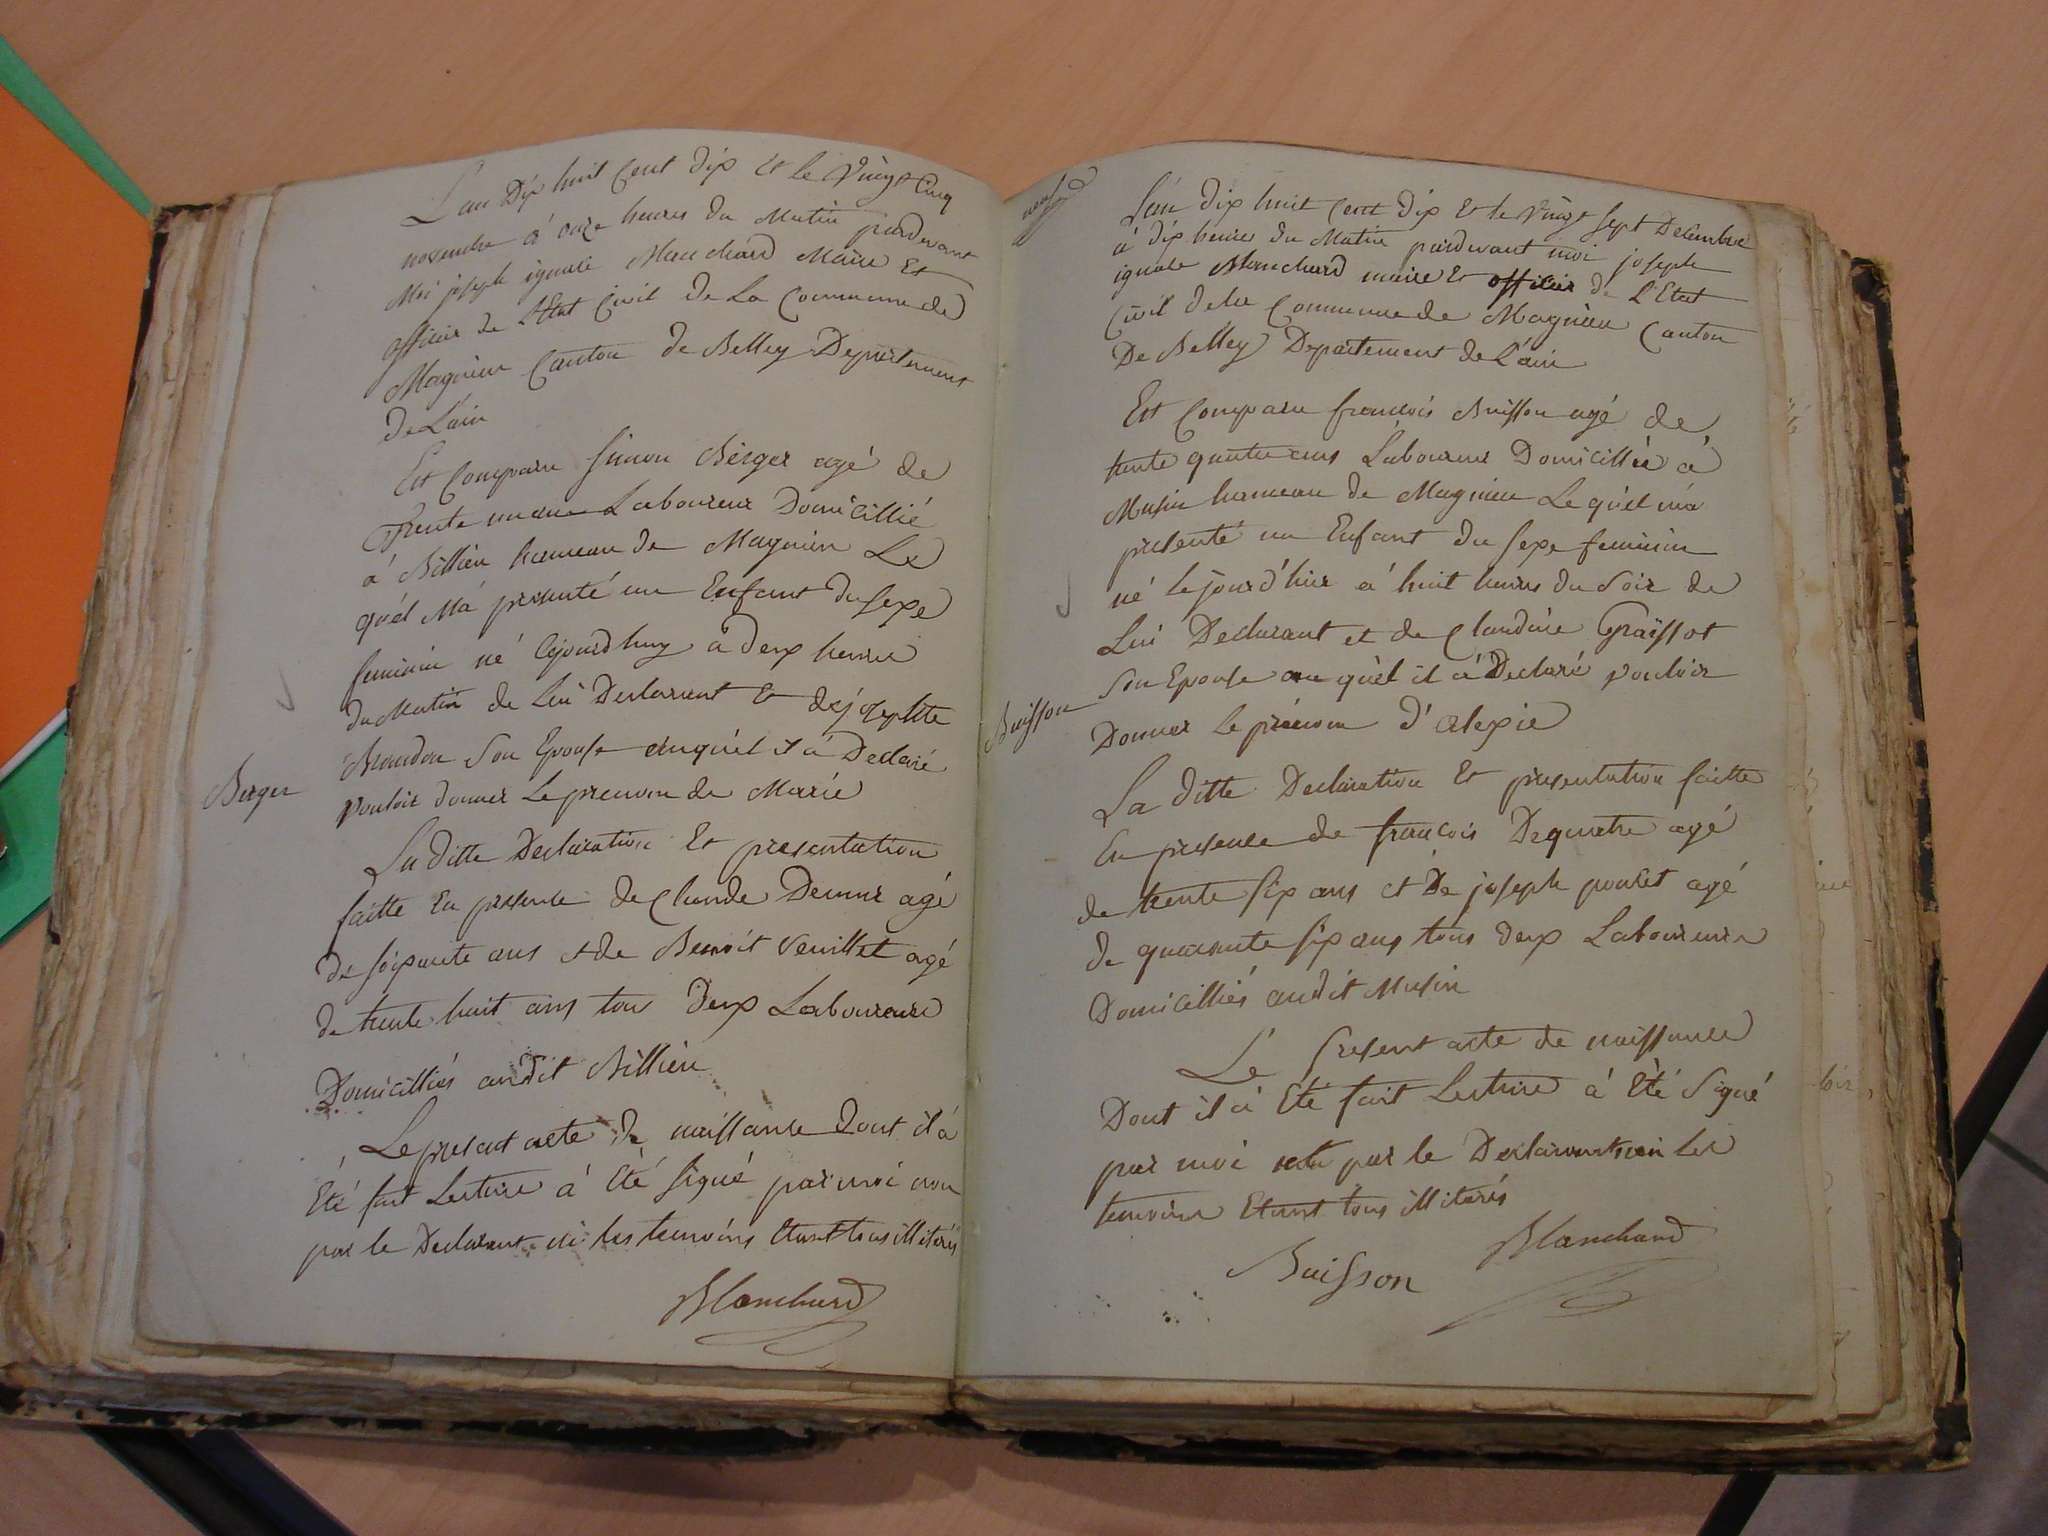 L'an Dix huit Cent dix et le Vingt Cinq
novembre à onze heures du Matin pardevant
Moi joseph ignace Blanchard Maire Et
officier de l'Etat Civil de La Commune de
Magnieu Canton de Belley Departement
de L'ain
Est Comparu Simon Berger agé de
Trente un ans Laboureur Domicillié
à Billieu hameau de Magnieu Le
quél M'a présenté un Enfant du Sexe
feminin né à deux heures
du Matin de Lui Declarant Et de josephte
Son Epouse auquél il a Declaré
Vouloir donner Le prenom de Marie
Berger
La ditte Declaration Et presentation
faitte En presence de Claude agé
de soixante ans et de Benoit Veuillet agé
de trente huit ans tous Deux Laboureurs
Domicilliés audit Billieu
Le present acte de naissance Dont il a
Eté fait Lecture à Eté Signé par moi non
par le Declarant ni les temoins Etant tous illiterés
Blanchard
L'an dix huit Cent dix Et le Vingt Sept Decembre
à dix heures du Matin pardevant moi joseph
ignace Blanchard maire Et officier de L'Etat
Civil de la Commune de Magnieu Canton
De Belley Departement de L'ain
Est Comparu francois Buisson agé de
trente quatre ans Laboureur Domicillié à
Musin hameau de Magnieu Le quél m'a
présenté un Enfant du Sexe feminin
né le jourd'hier à huit heures du Soir de
Lui Declarant et de Claudine
Son Epouse au quèl il à Declaré vouloir
Buisson
Donner Le prénom d'alexie
La ditte Declaration Et presentation faitte
En presence de francois Dequatre agé
de trente six ans et De joseph poulet agé
de quarante six ans tous deux Laboureurs
Domicilliés audit Musin
Le present acte de naissance
Dont il a Eté fait Lecture à Eté Signé
par moi par le Declarant non Les
temoins Etant tous illiterés
Blanchard
Buisson